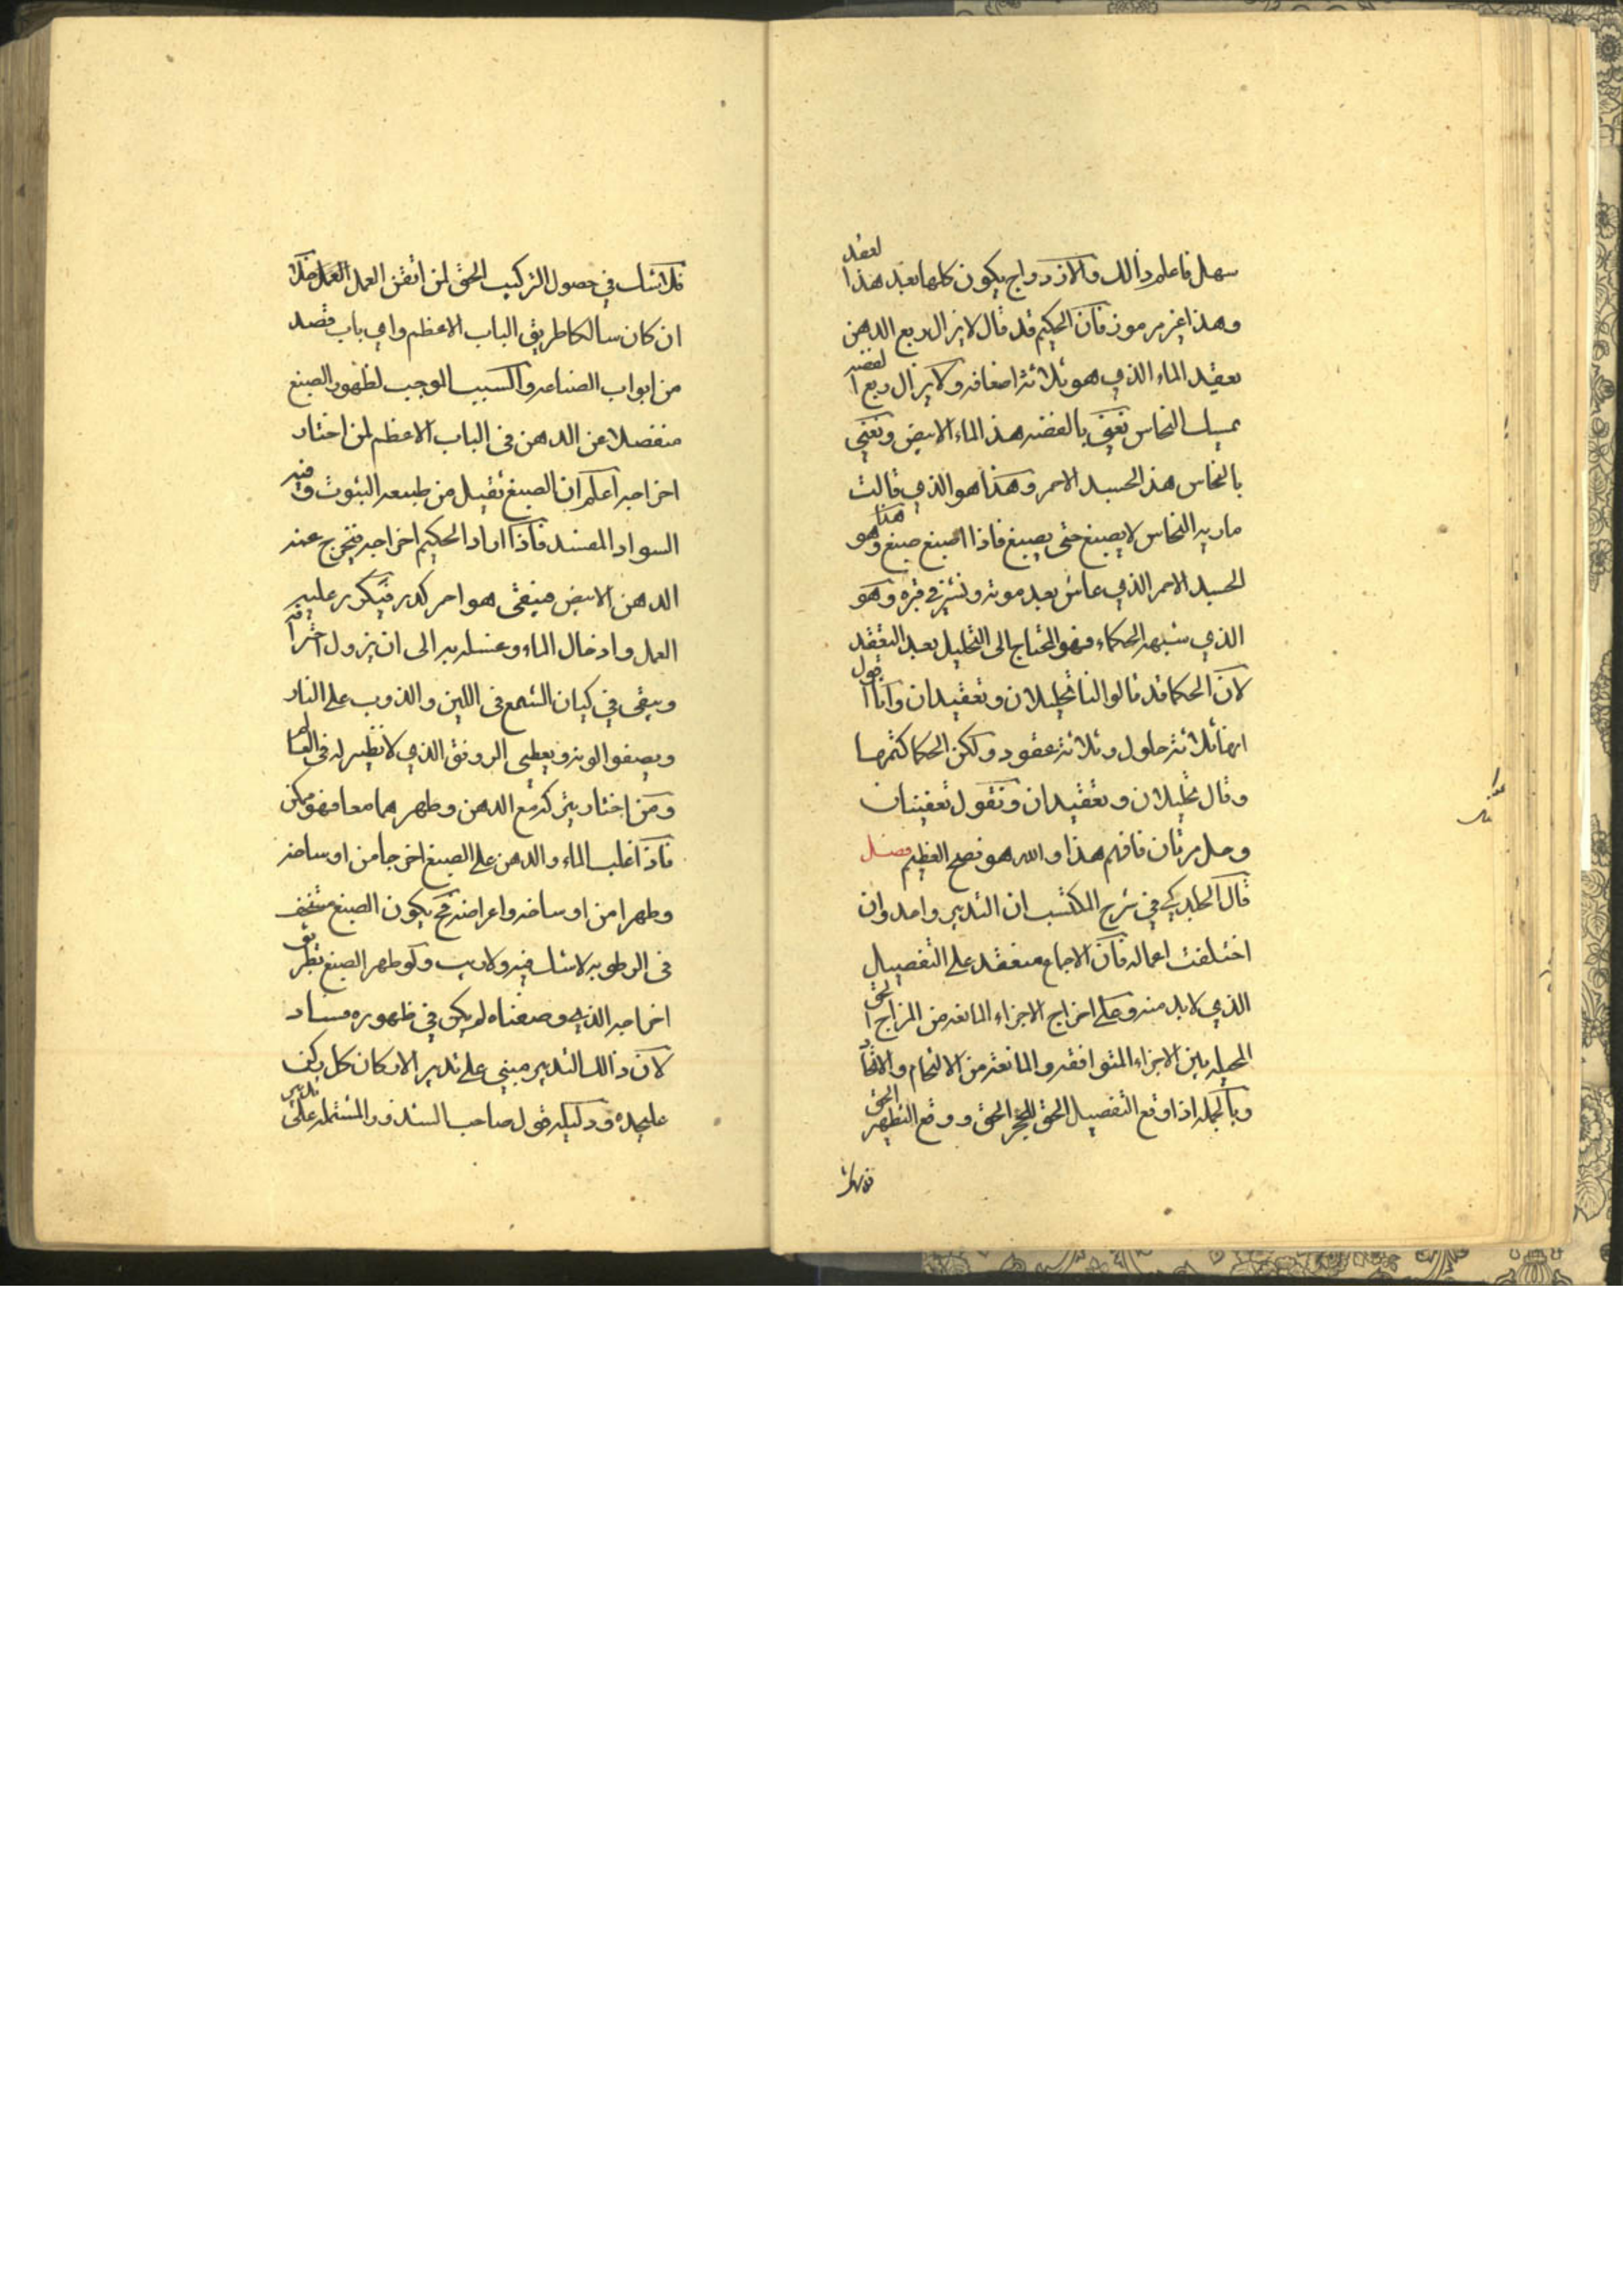 سهل فاعلم ذالك والازدواج يكون كلها بعد هذا العقد
وهذا غير مرموز فان الحكيم قد قال لا يزال ربع الدهن
يعقد الماء الذي هو ثلاثة اضعافه ولا يزال ربع الفضة
يمسك النحاس نعني بالفضه هذا الماء الابيض ونعني
بالنحاس هذا الجسد الاحمر وهذا هو الذي قالت
ماريه النحاس لا يصبغ حتى يصبغ فاذا اصبغ صبغ وهو هذا
الجسد الاحمر الذي عاش بعد موته ونشز في قبره وهو
الذي شبهه الحكماء فهو المحتاج الى التحليل بعد التعقد
لان الحكما قد قالوا لنا تحليلان وتعقيدان وانا اقول
انها ثلاثة حلول وثلاثة عقود ولكن الحكما كتمرها
وقال تحليلان وتعقيدان ونقول تعفينان
وحل مرتان فافهم هذا والله هو نصح العظيم فصل
قال الجلدكي في شرح المكتسب ان التدبير واحد وان
اختلفت اعماله فان الاجماع منعقد على التفصيل
الذي لا بد منه وعلى اخراج الاجزاء المانعه من المزاج الحق
المحيله بين الاجزاء المتوافقه والمانعة من الالتحام والاتحاد
وبالجمله اذا وقع التفصيل الحق للحجر الحق ووقع التطهير الحق
فلا شك
فلا شك في حصول التركيب الحق لمن اتقن العمل العمل خلا
ان كان سالكا طريق الباب الاعظم واي باب قصد
من ابواب الصناعه والسبب الموجب لظهور الصبغ
منفصلا عن الدهن في الباب الاعظم لمن اختار
اخراجه اعلم ان الصبغ ثقيل من طبيعه اليبوت وفيه
السواد المفسد فاذا اراد الحكيم اخراجه فيخرج عنه
الدهن الابيض فيبقى هو احمر كدر فيكرر عليه
العمل وادخال الماء وغسله به الى ان يزول احتراقه
ويبقى في كيان الشمع في اللين والذوب على النار
ويصفوا لونه ويعطي الرونق الذي لا نظير له في العالم
ومن اختار يتركه مع الدهن وطهرهما معا فهو ممكن
فاذا غلب الماء والدهن على الصبغ اخرجا من اوساخه
وطهرا من اوساخه واعراضه فح يكون الصبغ
في الرطوبه لا شك فيه ولا ريب ولو طهر الصبغ بطريق
اخراجه الذي وصفناه لم يكن في ظهوره فساد
لان ذالك التدبير مبني على تدبير الاركان كل ركن
عليحده ودليله قول صاحب الشذور المشتمله على تدبير